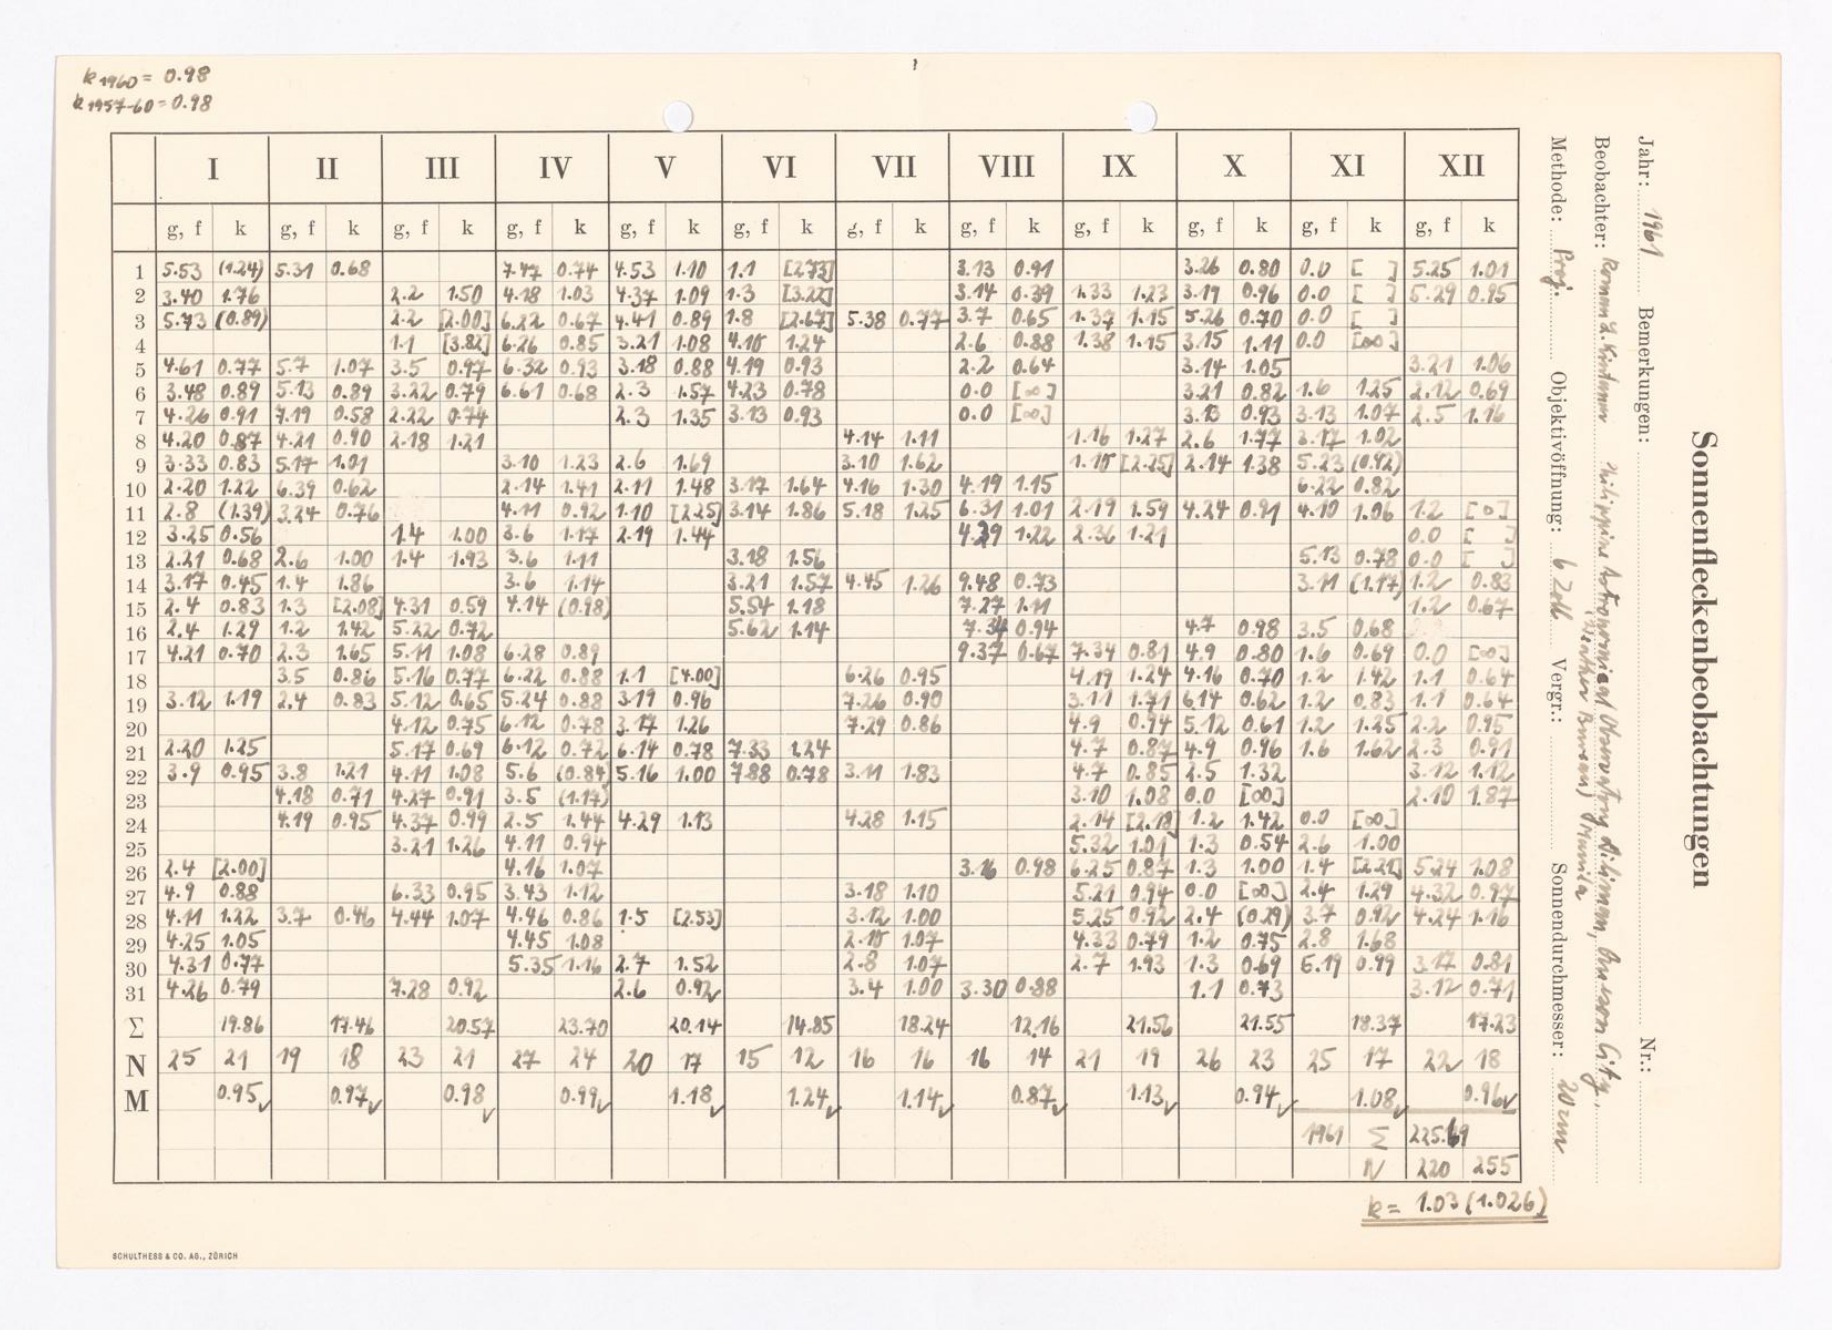 k 1960 = 0.98
k 1957-60 = 0.98
Sonnenfleckenbeobachtungen
Jahr: 1961 Bemerkungen: Nr.:
Beobachter: Philippine Astronomical Observatory Diliman, Quezon City,
(Weather Bureau) Manila
Methode: Proj. Objektivöffnung: 6 Zoll Vergr.: Sonnendurchmesser: 20 cm
I II III IV V VI VII VIII IX X XI XII
g, f k g, f k g, f k g, f k g, f k g, f k g, f k g, f k g, f k g, f k g, f k g, f k
1 5.53 (1.24) 5.31 0.68 7.47 0.74 4.53 1.10 1.1 [2.73] 3.13 0.91 3.26 0.80 0.0 [ ] 5.25 1.01
2 3.40 1.76 2.2 1.50 4.18 1.03 4.37 1.09 1.3 [3.22] 3.14 0.39 1.33 1.23 3.19 0.96 0.0 [ ] 5.29 0.95
3 5.73 (0.89) 2.2 [2.00] 6.22 0.67 4.41 0.89 1.8 [2.67] 5.38 0.77 3.7 0.65 1.37 1.15 5.26 0.70 0.0 [ ]
4 1.1 [3.82] 6.26 0.85 3.21 1.08 4.15 1.24 2.6 0.88 1.38 1.15 3.15 1.11 0.0 [∞]
5 4.61 0.77 5.7 1.07 3.5 0.97 6.32 0.93 3.18 0.88 4.19 0.93 2.2 0.64 3.14 1.05 3.21 1.06
6 3.48 0.89 5.13 0.89 3.22 0.79 6.61 0.68 2.3 1.57 4.23 0.78 0.0 [∞] 3.21 0.82 1.6 1.25 2.12 0.69
7 4.26 0.91 7.19 0.58 2.22 0.74 2.3 1.35 3.13 0.93 0.0 [∞] 3.13 0.93 3.13 1.07 2.5 1.16
8 4.20 0.87 4.21 0.90 2.18 1.21 4.14 1.11 1.16 1.27 2.6 1.77 3.17 1.02
9 3.33 0.83 5.17 1.01 3.10 1.23 2.6 1.69 3.10 1.62 1.15 [2.25] 2.14 1.38 5.23 (0.92)
10 2.20 1.22 6.39 0.62 2.14 1.41 2.11 1.48 3.17 1.64 4.16 1.30 4.19 1.15 6.22 0.82
11 2.8 (1.39) 3.24 0.76 4.11 0.92 1.10 [2.25] 3.14 1.86 5.18 1.25 6.31 1.01 2.19 1.59 4.24 0.91 4.10 1.06 1.2 [0]
12 3.25 0.56 1.4 1.00 3.6 1.17 2.19 1.44 4.29 1.22 2.36 1.21 0.0 [ ]
13 2.21 0.68 2.6 1.00 1.4 1.93 3.6 1.11 3.18 1.56 5.13 0.78 0.0 [ ]
14 3.17 0.45 1.4 1.86 3.6 1.14 3.21 1.57 4.45 1.26 9.48 0.73 3.11 (1.17) 1.2 0.83
15 2.4 0.83 1.3 [2.08] 4.31 0.59 4.14 (0.98) 5.54 1.18 7.27 1.11 1.2 0.67
16 2.4 1.29 1.2 1.42 5.22 0.72 5.62 1.14 7.34 0.94 4.7 0.98 3.5 0.68
17 4.21 0.70 2.3 1.65 5.11 1.08 6.28 0.89 9.37 0.67 7.34 0.81 4.9 0.80 1.6 0.69 0.0 [∞]
18 3.5 0.86 5.16 0.77 6.22 0.88 1.1 [4.00] 6.26 0.95 4.19 1.24 4.16 0.70 1.2 1.42 1.1 0.64
19 3.12 1.19 2.4 0.83 5.12 0.65 5.24 0.88 3.19 0.96 7.26 0.90 3.11 1.71 6.14 0.62 1.2 0.83 1.1 0.64
20 4.12 0.75 6.12 0.78 3.17 1.26 7.29 0.86 4.9 0.94 5.12 0.61 1.2 1.25 2.2 0.95
21 2.20 1.25 5.17 0.69 6.12 0.72 6.14 0.78 7.33 1.24 4.7 0.87 4.9 0.96 1.6 1.62 2.3 0.91
22 3.9 0.95 3.8 1.21 4.11 1.08 5.6 (0.84) 5.16 1.00 7.88 0.78 3.11 1.83 4.7 0.85 2.5 1.32 3.12 1.12
23 4.18 0.71 4.27 0.91 3.5 (1.17) 3.10 1.08 0.0 [∞] 2.10 1.87
24 4.19 0.95 4.37 0.99 2.5 1.44 4.29 1.13 4.28 1.15 2.14 [2.18] 1.2 1.42 0.0 [∞]
25 3.21 1.26 4.11 0.94 5.32 1.01 1.3 0.54 2.6 1.00
26 2.4 [2.00] 4.16 1.07 3.16 0.98 6.25 0.87 1.3 1.00 1.4 [2.21] 5.24 1.08
27 4.9 0.88 6.33 0.95 3.43 1.12 3.18 1.10 5.21 0.94 0.0 [∞] 2.4 1.29 4.32 0.97
28 4.11 1.22 3.7 0.46 4.44 1.07 4.46 0.86 1.5 [2.53] 3.12 1.00 5.25 0.92 2.4 (0.29) 3.7 0.92 4.24 1.16
29 4.25 1.05 4.45 1.08 2.15 1.07 4.33 0.79 1.2 0.75 2.8 1.68
30 4.31 0.77 5.35 1.16 2.7 1.52 2.8 1.07 2.7 1.93 1.3 0.69 5.19 0.99 3.17 0.81
31 4.26 0.79 7.28 0.92 2.6 0.92 3.4 1.00 3.30 0.88 1.1 0.73 3.12 0.71
Σ 19.86 17.46 20.57 23.70 20.14 14.85 18.24 12.16 21.56 21.55 18.37 17.23
N 25 21 19 18 23 21 27 24 20 17 15 12 16 16 16 14 21 19 26 23 25 17 22 18
M 0.95 0.97 0.98 0.99 1.18 1.24 1.14 0.87 1.13 0.94 1.08 0.96
1961 Σ 225.69
N 220 255
k = 1.03 (1.026)
SCHULTHESS & CO. AG., ZÜRICH